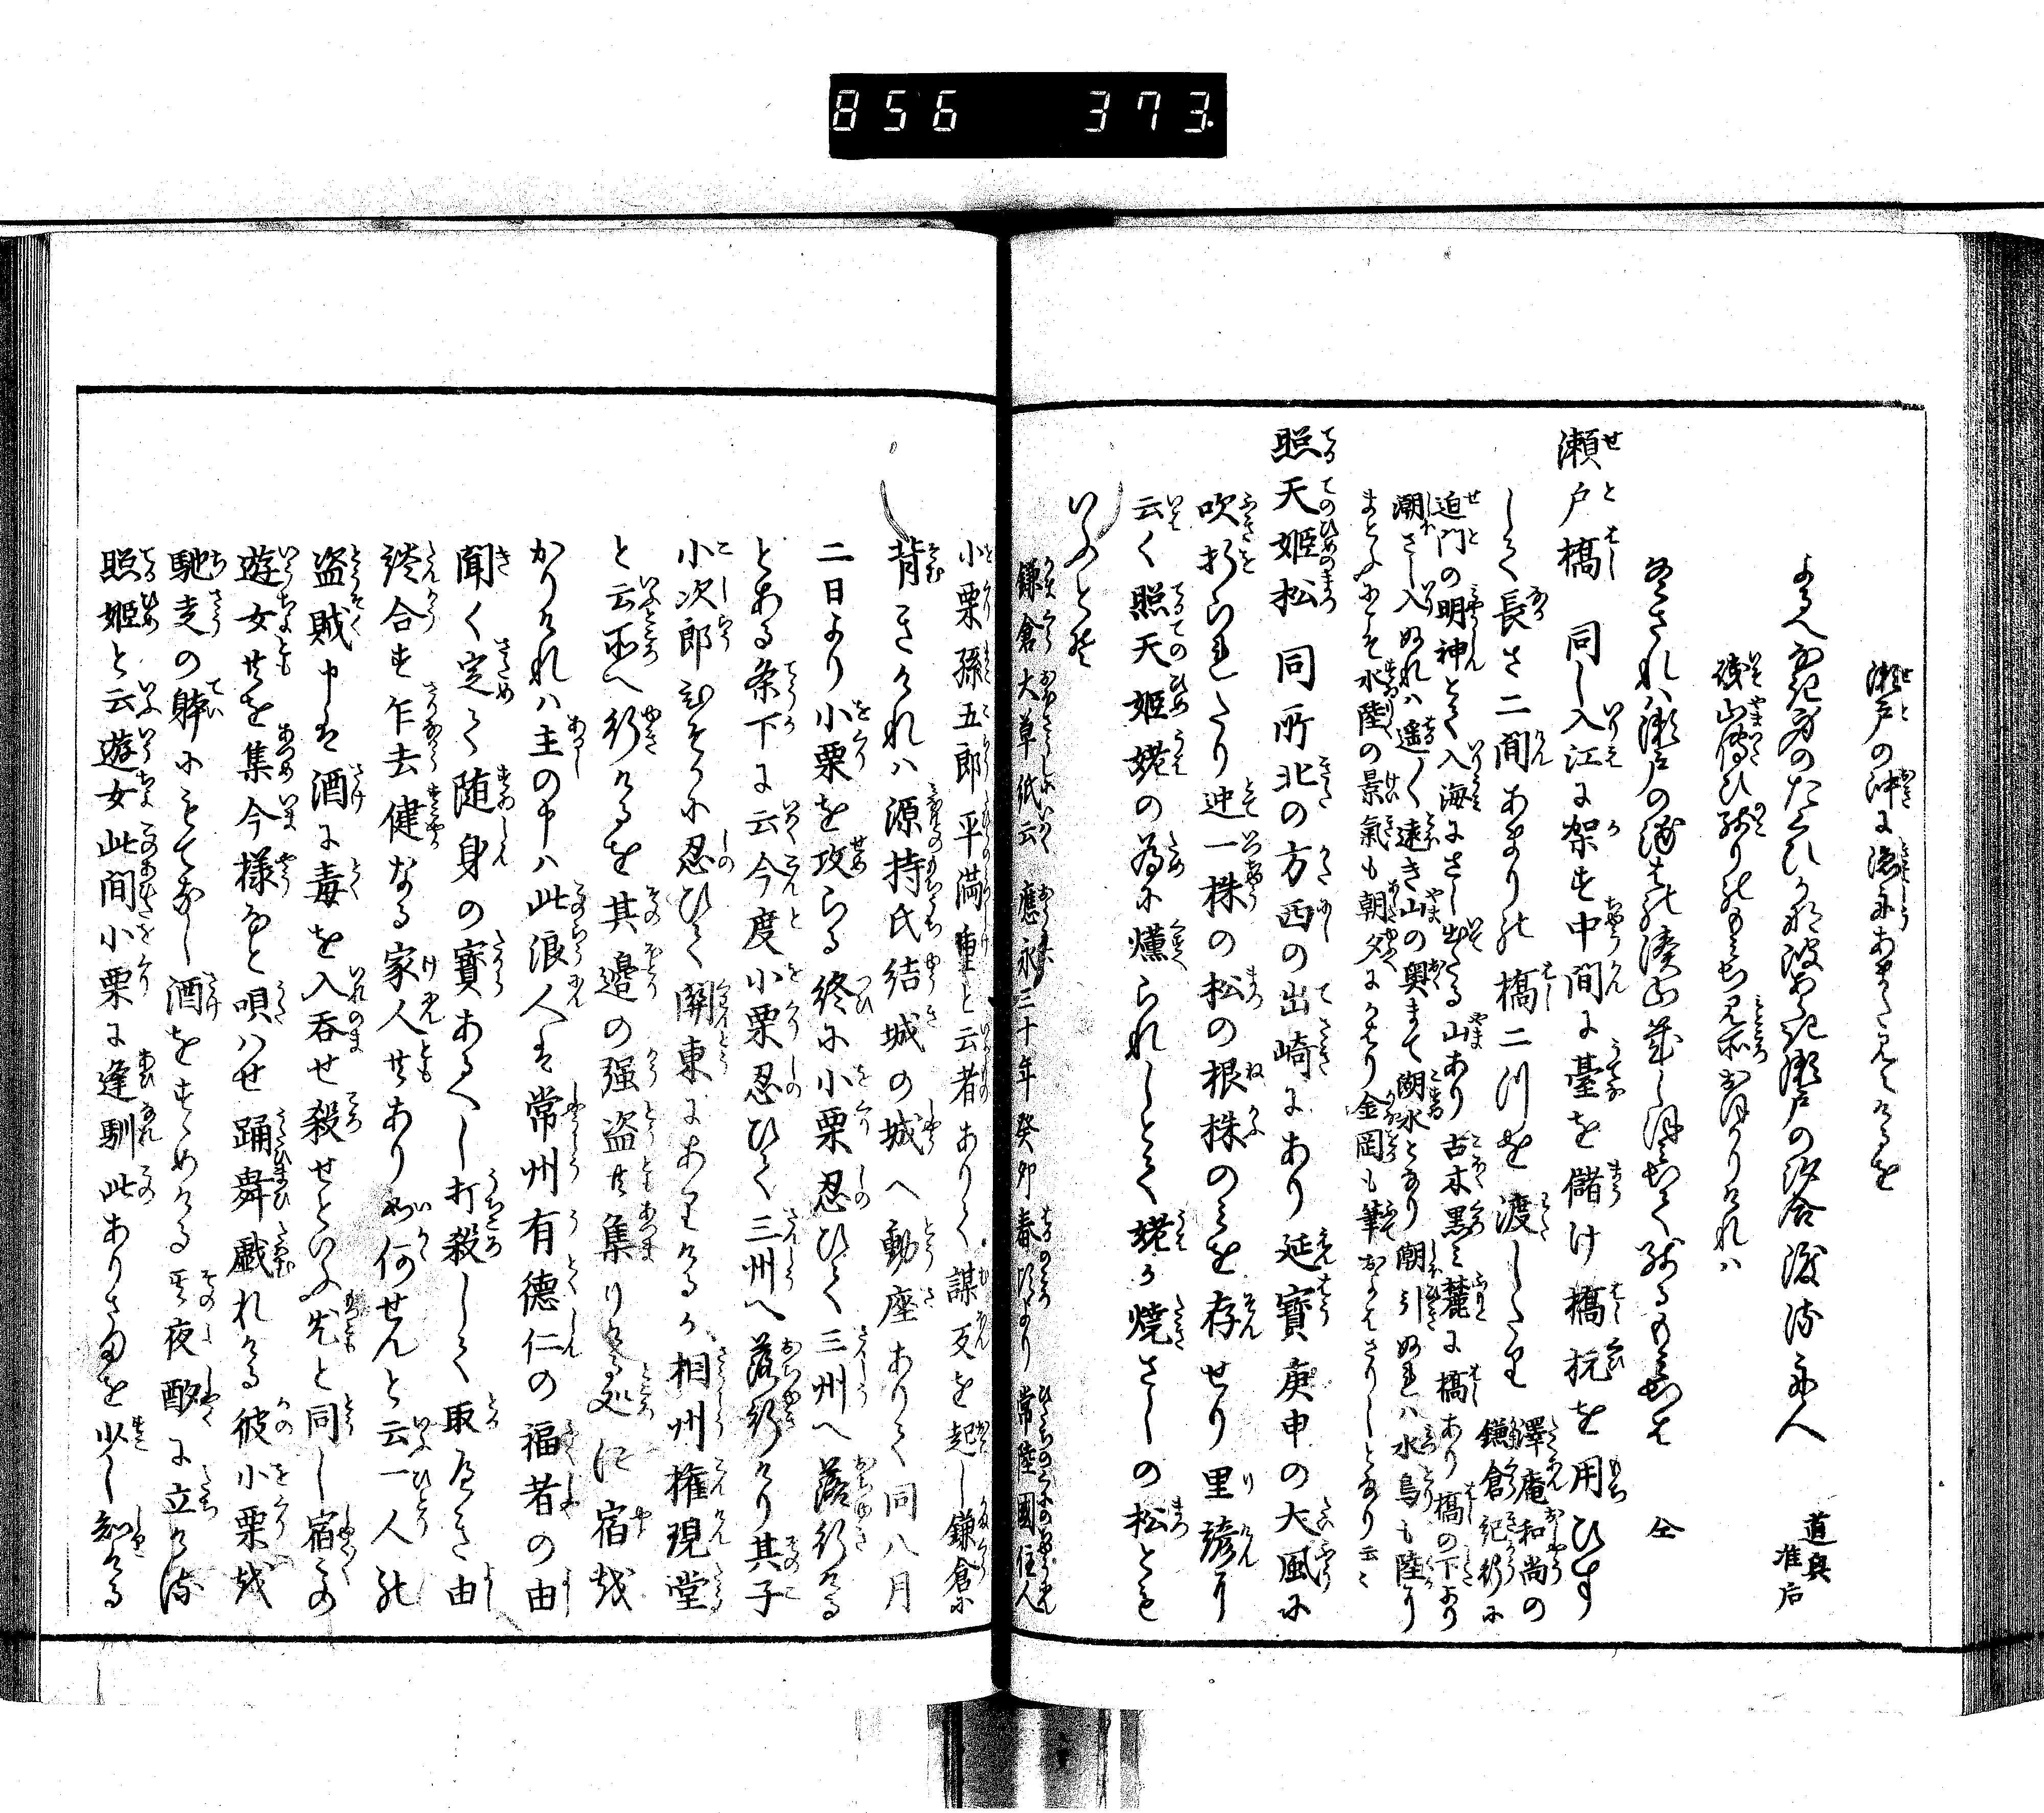 856 373.
瀬戸の沖に漁舟あまた見てけるを
よるへなき身のたくひかな波あらき瀬戸の汐合渡る舟人 道興准后
磯山傳ひ残りのもみち見所おほかりけれハ
冬されハ瀬戸の浦わの湊山幾しほみちて残るもみちそ 仝
瀬戸橋 同し入江に架す中間に臺を儲け橋杭を用ひす
して長さ二間あまりの橋二つを渡したり 澤庵和尚の鎌倉紀行に
迫門の明神とて入海にさし出たる山あり古木黒ミ麓に橋あり橋の下より
潮さし入ぬれハ遥く遠き山の奥まて湖水となり潮引ぬれハ水鳥も陸り
まとふにこそ水陸の景氣も朝夕にかはり金岡も筆およはさりしとなり云々
照天姫松 同所北の方西の出崎にあり延寳庚申の大風に
吹折られたり迹一株の松の根株のミを存せり里諺に
云く照天姫姥の為に燻られしとて姥か焼さしの松とも
いふとそ
鎌倉大草紙云 應永三十年癸卯春頃より 常陸國住人
小栗孫五郎平満重と云者ありて謀反を起し鎌倉に
背きけれハ源持氏結城の城へ動座ありて同八月
二日より小栗を攻らる終に小栗忍ひて三州へ落行ける
とある条下に云今度小栗忍ひて三州へ落行けり其子
小次郎ひそかに忍ひて関東にありけるか相州権現堂
と云所へ行けるを其邉の强盗共集りける処に宿を
かりけれハ主の申ハ此浪人ハ常州有徳仁の福者の由
聞く定て随身の寳あるへし打殺して取るへき由
談合す乍去健なる家人共あり如何せんと云一人の
盗賊申ハ酒に毒を入呑せ殺せといふ尤と同し宿々の
遊女共を集今様なと唄ハせ踊舞戯れける彼小栗を
馳走の躰にもてなし酒をすゝめける其夜酌に立ける
照姫と云遊女此間小栗に逢馴此ありさまを少し知ける